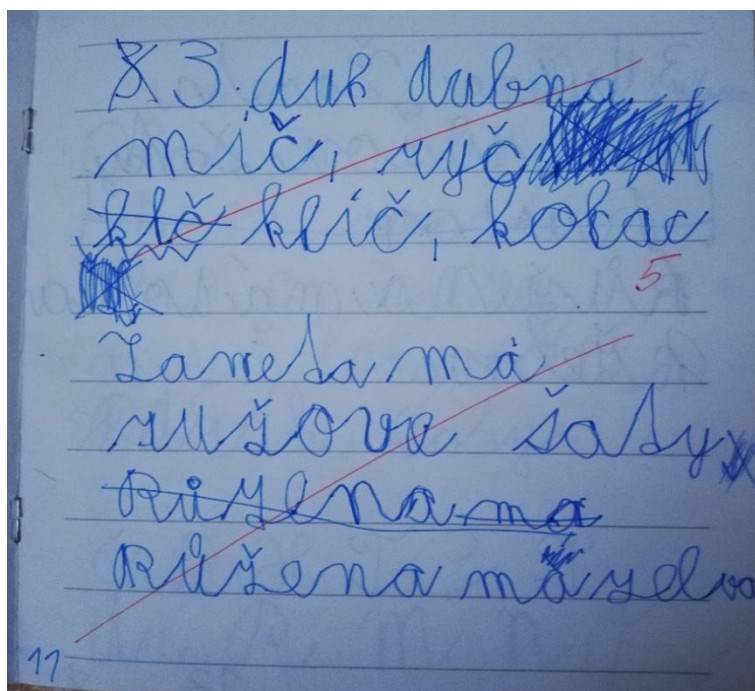 3. duh dubna
míč, ryč
klč klíč, kokac
5
Žaneta má
ružove šaty
Růžena ma
Růžena má zelva
11